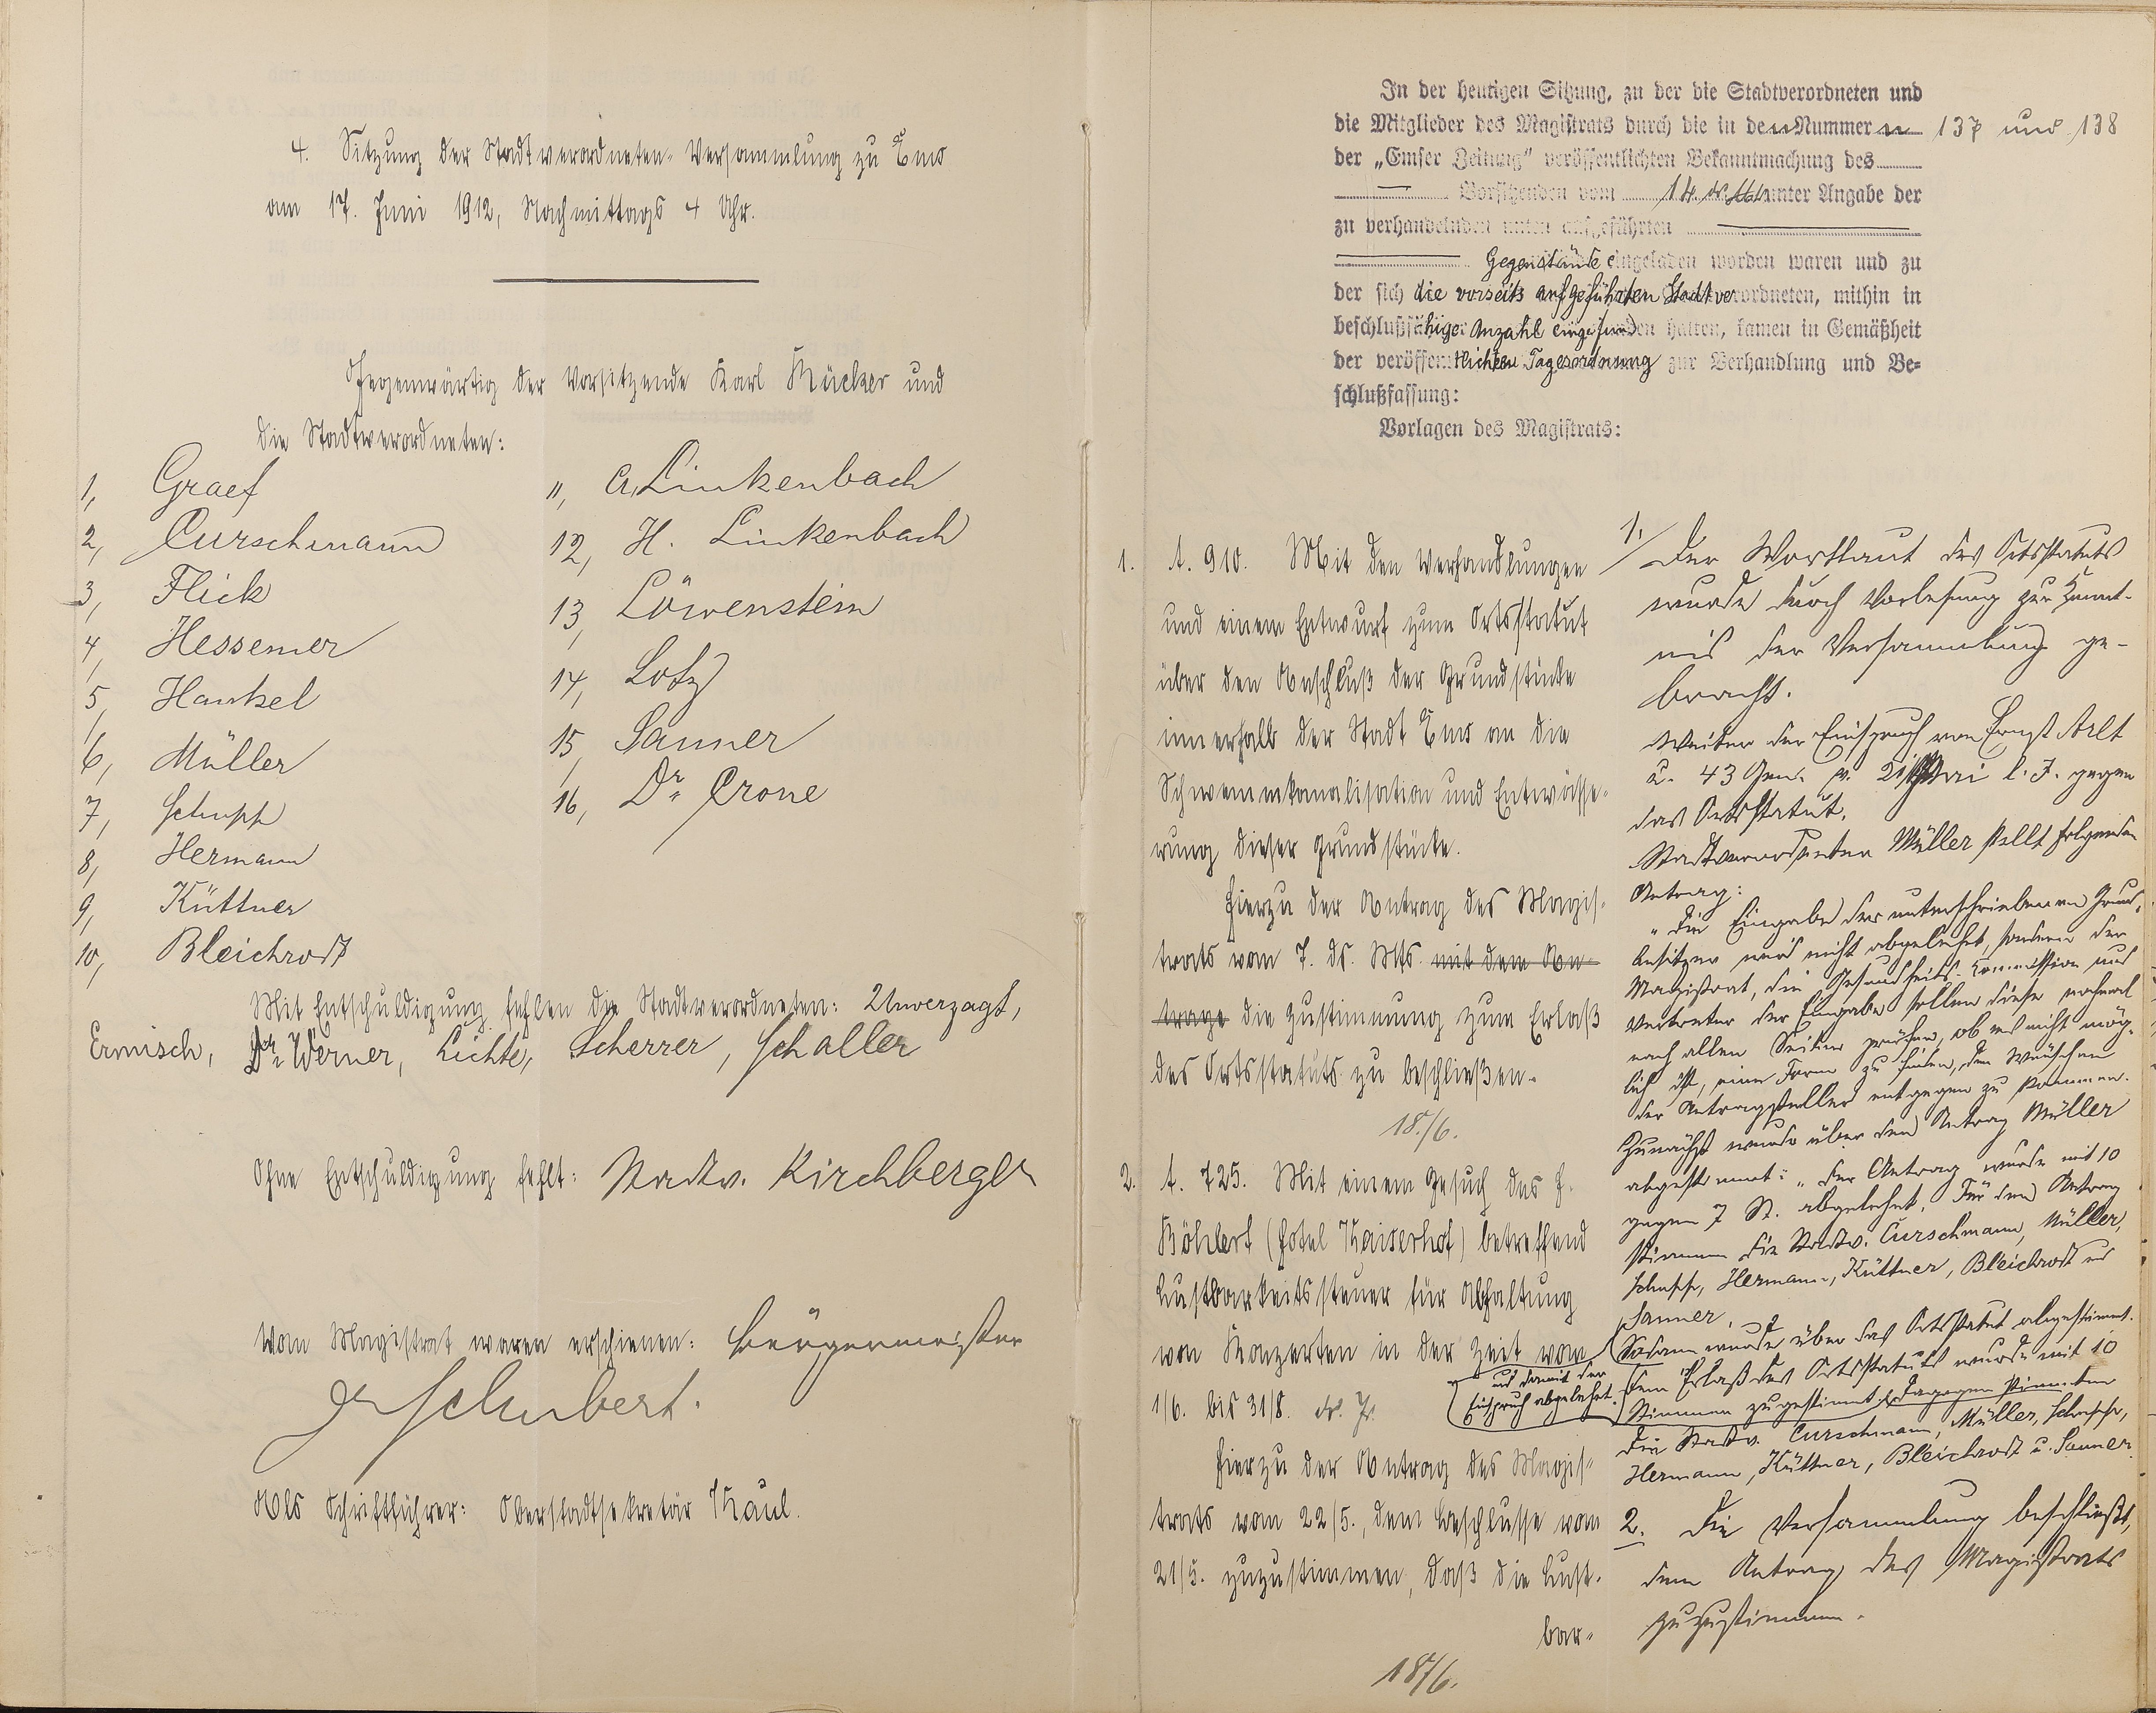 4. Sitzung der Stadtverordneten-Versammlung zu Ems
am 17. Juni 1912, Nachmittags 4 Uhr.
Gegenwärtig der Vorsitzende Karl Rücker und
die Stadtverordneten:
1, Graef
2, Curschmann
3, Flick
4, Hessemer
5, Hankel
6, Müller
7, Schupp
8, Hermann
9, Küttner
10, Bleichrodt
11, A. Linkenbach
12, H. Linkenbach
13, Löwenstein
14, Lotz
15, Sanner
16, Dr. Crone
Mit Entschuldigung fehlen die Stadtverordneten: Unverzagt,
Ermisch, Dr. Werner, Lichte, Scherrer, Schaller
Ohne Entschuldigung fehlt: Stadtv. Kirchberger
Vom Magistrat waren erschienen: Bürgermeister
Dr Schubert.
Als Schriftführer: Oberstadtsekretär Kaul.
In der heutigen Sitzung, zu der die Stadtverordneten und
die Mitglieder des Magistrats durch die in den Nummern 137 und 138
der „Emser Zeitung" veröffentlichten Bekanntmachung des
Vorsitzenden vom 14. ds. Mts. unter Angabe der
zu verhandelnden unten aufgeführten
Gegenstände eingeladen worden waren und zu
der sich die vorseits aufgeführten Stadtverordneten, mithin in
beschlußfähiger Anzahl eingefunden hatten, kamen in Gemäßheit
der veröffentlichten Tagesordnung zur Verhandlung und Be-
schlußfassung:
Vorlagen des Magistrats:
1. A. 910. Mit den Verhandlungen
und einem Entwurf zum Ortsstatut
über den Anschluß der Grundstücke
innerhalb der Stadt Ems an die
Schwemmkanalisation und Entwässe-
rung dieser Grundstücke.
Hierzu der Antrag des Magis-
trats vom 7. ds. Mts. mit dem An-
trage die Zustimmung zum Erlaß
des Ortsstatuts zu beschließen.
18./6.
2. A. 725. Mit einem Gesuch des H.
Röhlert (Hotel Kaiserhof) betreffend
Lustbarkeitssteuer für Abhaltung
von Konzerten in der Zeit vom
1/6. bis 31/8. ds. Js.
Hierzu der Antrag des Magis-
trats vom 22/5., dem Beschlusse vom
21/5. zuzustimmen, daß die Lust-
bar-
18/6.
1./ Der Wortlaut des Ortsstatuts
wurde durch Vorlesung zur Kennt-
nis der Versammlung ge-
bracht.
Weiter der Einspruch von Ernst Arlt
u. 43 Gen. v. 21. Mai l. J. gegen
das Ortsstatut.
Stadtverordneter Müller stellt folgenden
Antrag:
"Die Eingabe der unterschriebenen Grund-
besitzer wird nicht abgelehnt, sondern der
Magistrat, die Gesundheits-Kommission und
Vertreter der Eingabe sollen diese nochmal
nach allen Seiten prüfen, ob es nicht mög-
lich ist, eine Form zu finden, den Wünschen
der Antragsteller entgegen zu kommen.
Zunächst wurde über den Antrag Müller
abgestimmt: „Der Antrag wurde mit 10
gegen 7 St. abgelehnt. Für den Antrag
stimmen die Stadtv. Curschmann, Müller,
Schupp, Hermann, Küttner, Bleichrodt und
Sanner.
Sodann wurde über das Ortsstatut abgestimmt.
Dem Erlaß des Ortsstatuts wurde mit 10
Stimmen zugestimmt, dagegen stimmten
und damit der
Einspruch abgelehnt.
die Stadtv. Curschmann, Müller, Schupp,
Hermann, Küttner, Bleichrodt u. Sanner.
2. Die Versammlung beschließt,
dem Antrag des Magistrats
zuzustimmen.